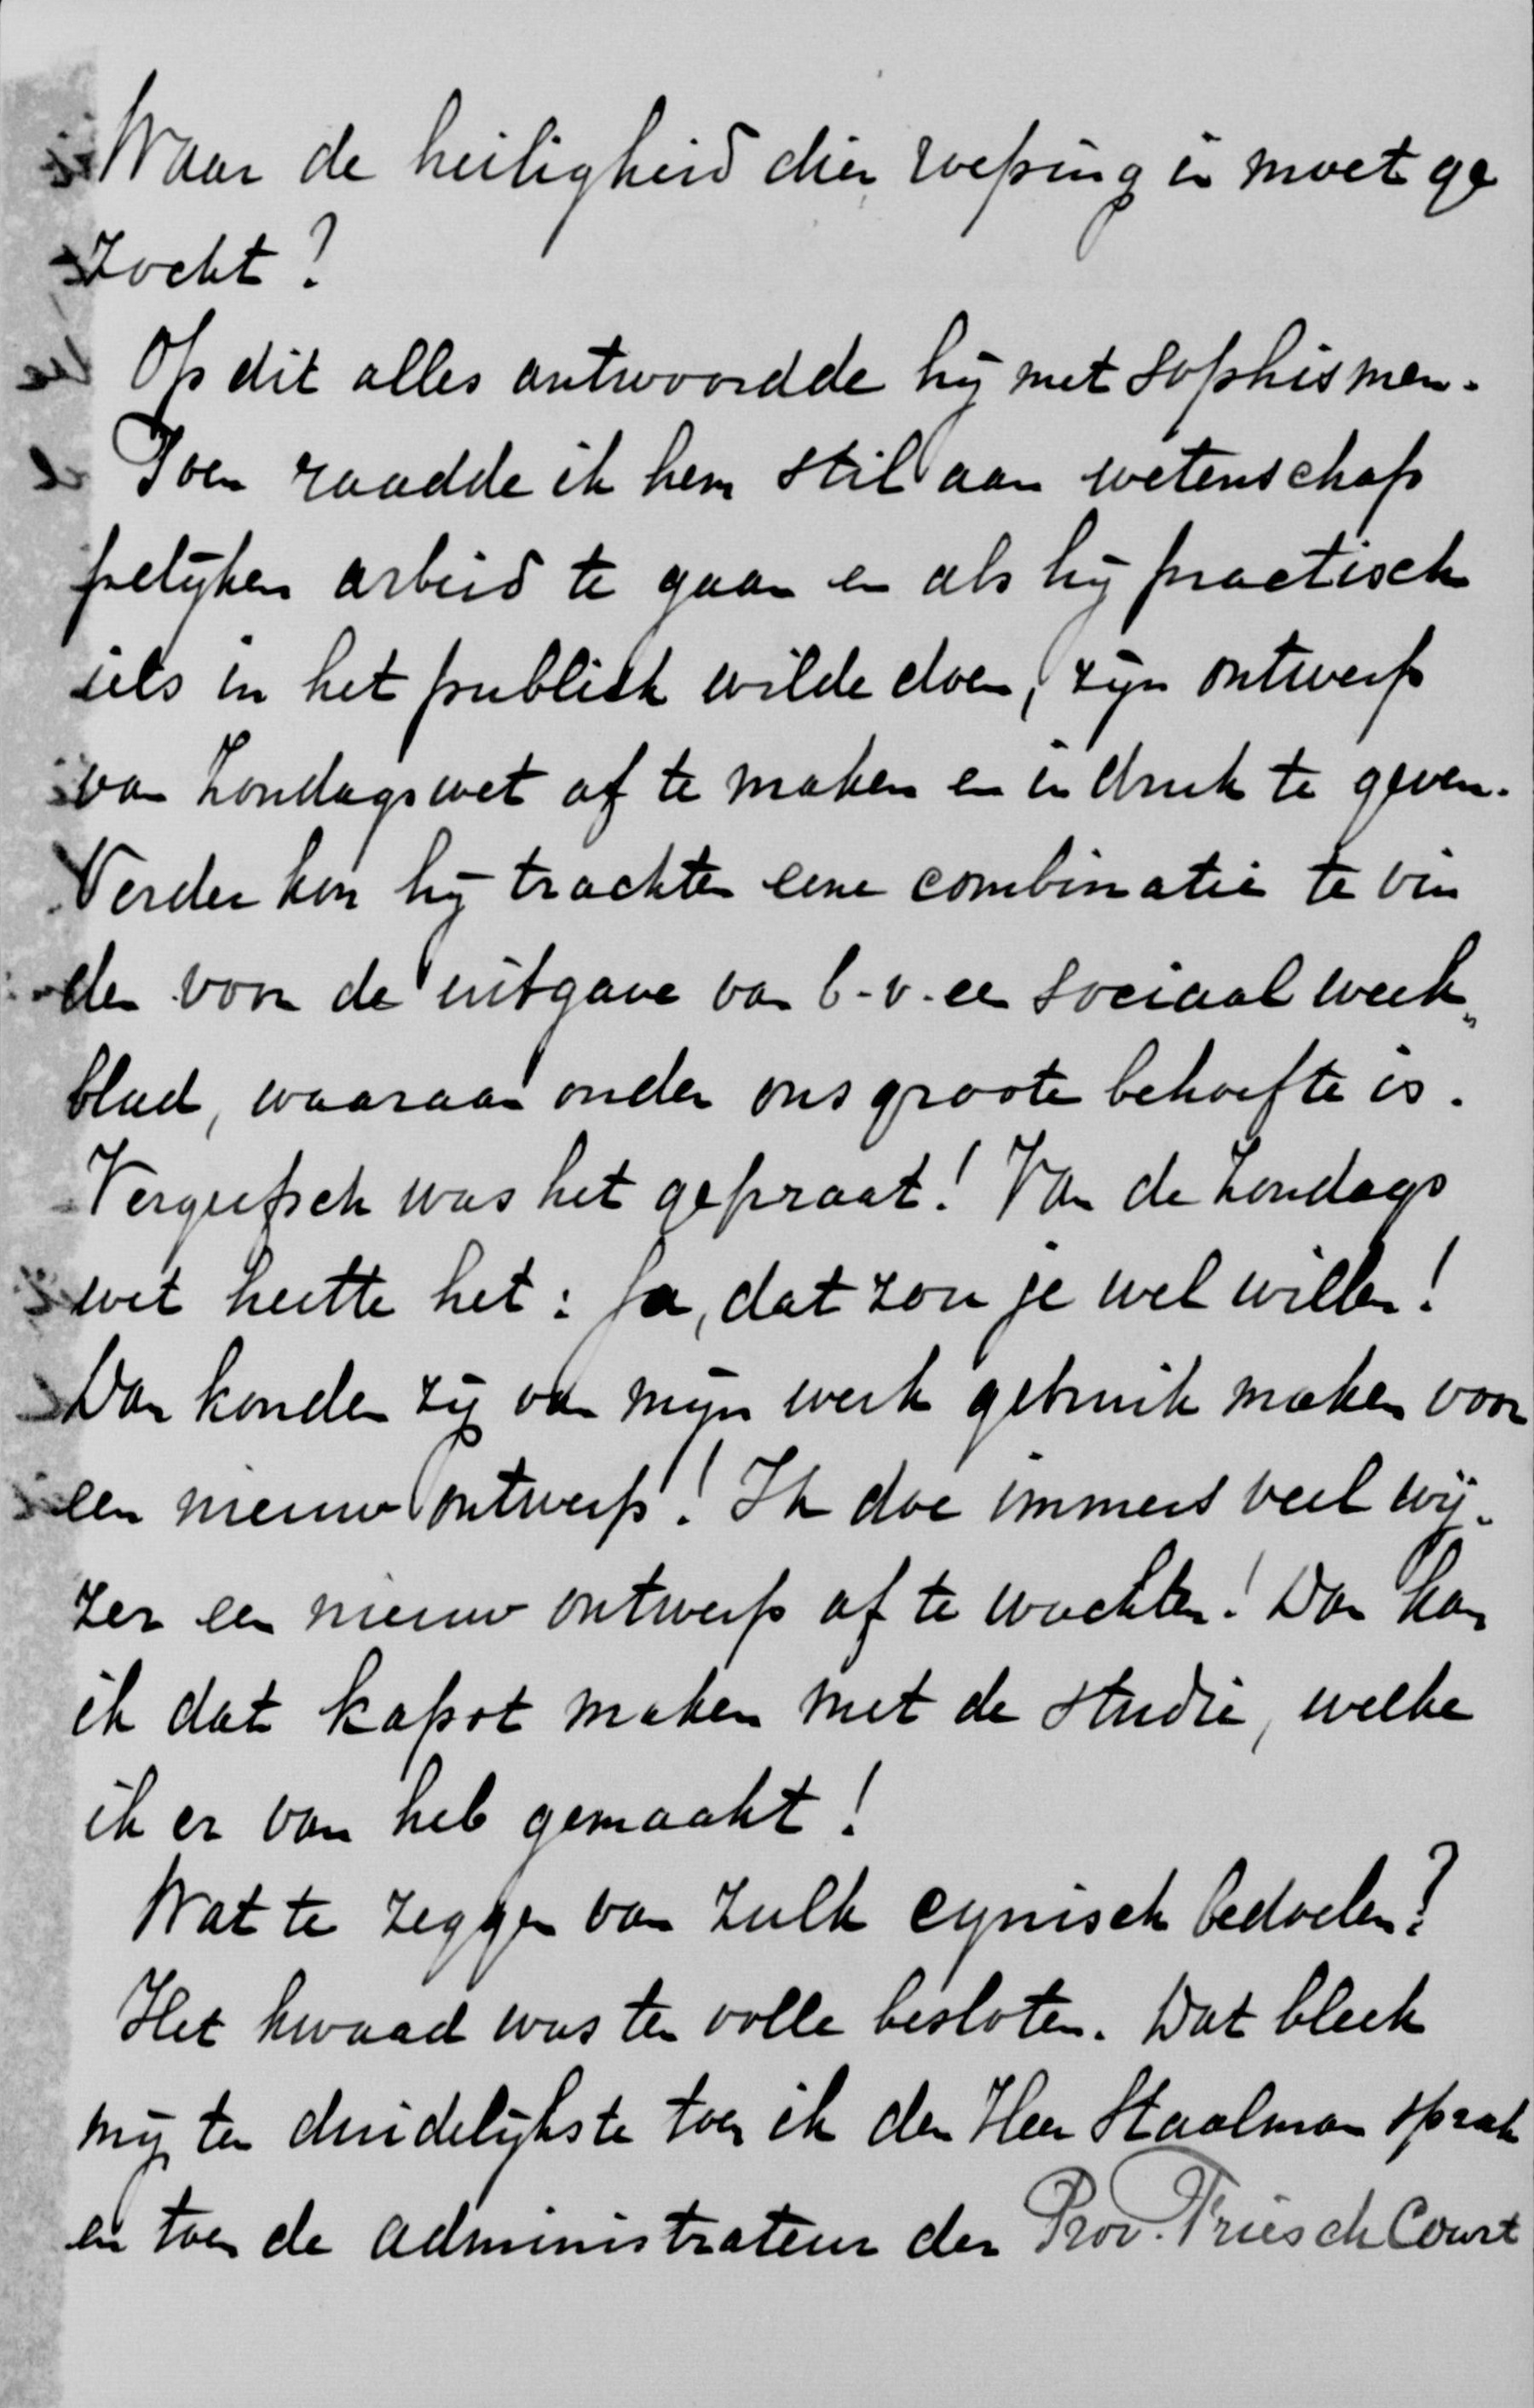 Waar de heiligheid dier roeping in moet ge
zocht?
Op dit alles antwoordde hij met sophismen.
Toen raadde ik hem stil aan wetenschap
pelijken arbeid te gaan en als hij practisch
iets in het publiek wilde doen, zijn ontwerp
van Zondagswet af te maken en in druk te geven.
Verder kon hij trachten eene combinatie te vin
den voor de uitgave van b.v. een sociaal week„
blad, waaraan onder ons groote behoefte is.
Vergeefsch was het gepraat! Van de Zondags
wet heette het: Ja, dat zou je wel willen!
Dan konden zij van mijn werk gebruik maken voor
een nieuw ontwerp! Ik doe immers veel wij„
zer een nieuw ontwerp af te wachten! Dan kan
ik dat kapot maken met de studie, welke
ik er van heb gemaakt!
Wat te zeggen van zulk cynisch bedoelen?
Het kwaad was ten volle besloten. Dat bleek
mij ten duidelijkste toen ik den Heer Staalman sprak
en toen de administrateur der Prov. Friesch Court